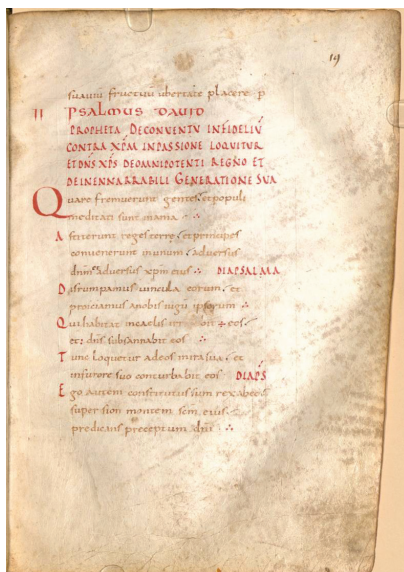 19
suavium fructuum ubertate placere p
II PSALMUS DAUID
PROPHETA DECONVENTV INFIDELIV
CONTRA XPM INPASSIONE LOQUITUR
ET DNS XPS DEOMNIPOTENTI REGNO ET
DEINENNARRABILI GENERATIONE SVA
Quare fremuerunt gentes et populi
meditati sunt inania
Astiterunt reges terre et principes
convenerunt inunum adversus
dnm & adversus xpm eius DIAPSALMA
Disrumpamus vincula eorum et
proiciamus anobis iugu ipsorum
Qui habitat incaelis irr eos
et dns subsannabit eos
Tunc loquetur adeos inira sua et
infurore suo conturbabit eos DIAPS
Ego autem constitutus sum rex abeo
super sion montem scm eius
predicans preceptum dni